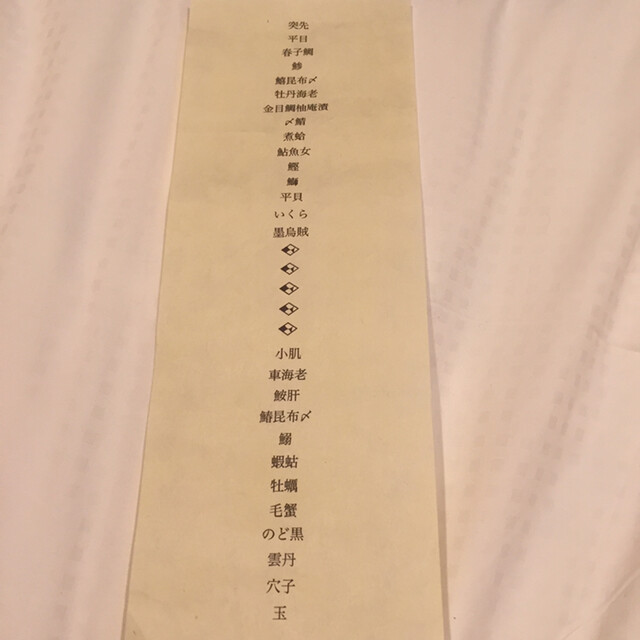 突先
平目
春子鯛
鯵
鰆昆布〆
牡丹海老
金目鯛柚庵漬
〆鯖
煮蛤
鮎魚女
鰹
鰤
平貝
いくら
墨烏賊
小肌
車海老
鮟肝
鰆昆布〆
鰯
蝦蛄
牡蠣
毛蟹
のど黒
雲丹
穴子
玉